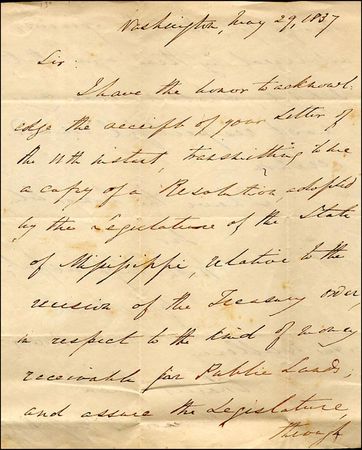 Washington, May 29, 1837
Sir:
I have the honor to acknowl-
edge the receipt of your Letter of
the 11th instant, transmitting
a copy of a Resolution, adopted
by the Legislature of the State
of Mississippi, relative to the
recision of the Treasury order,
in respect to the kind of money
receivable for Public Lands;
and assure the Legislature,
through